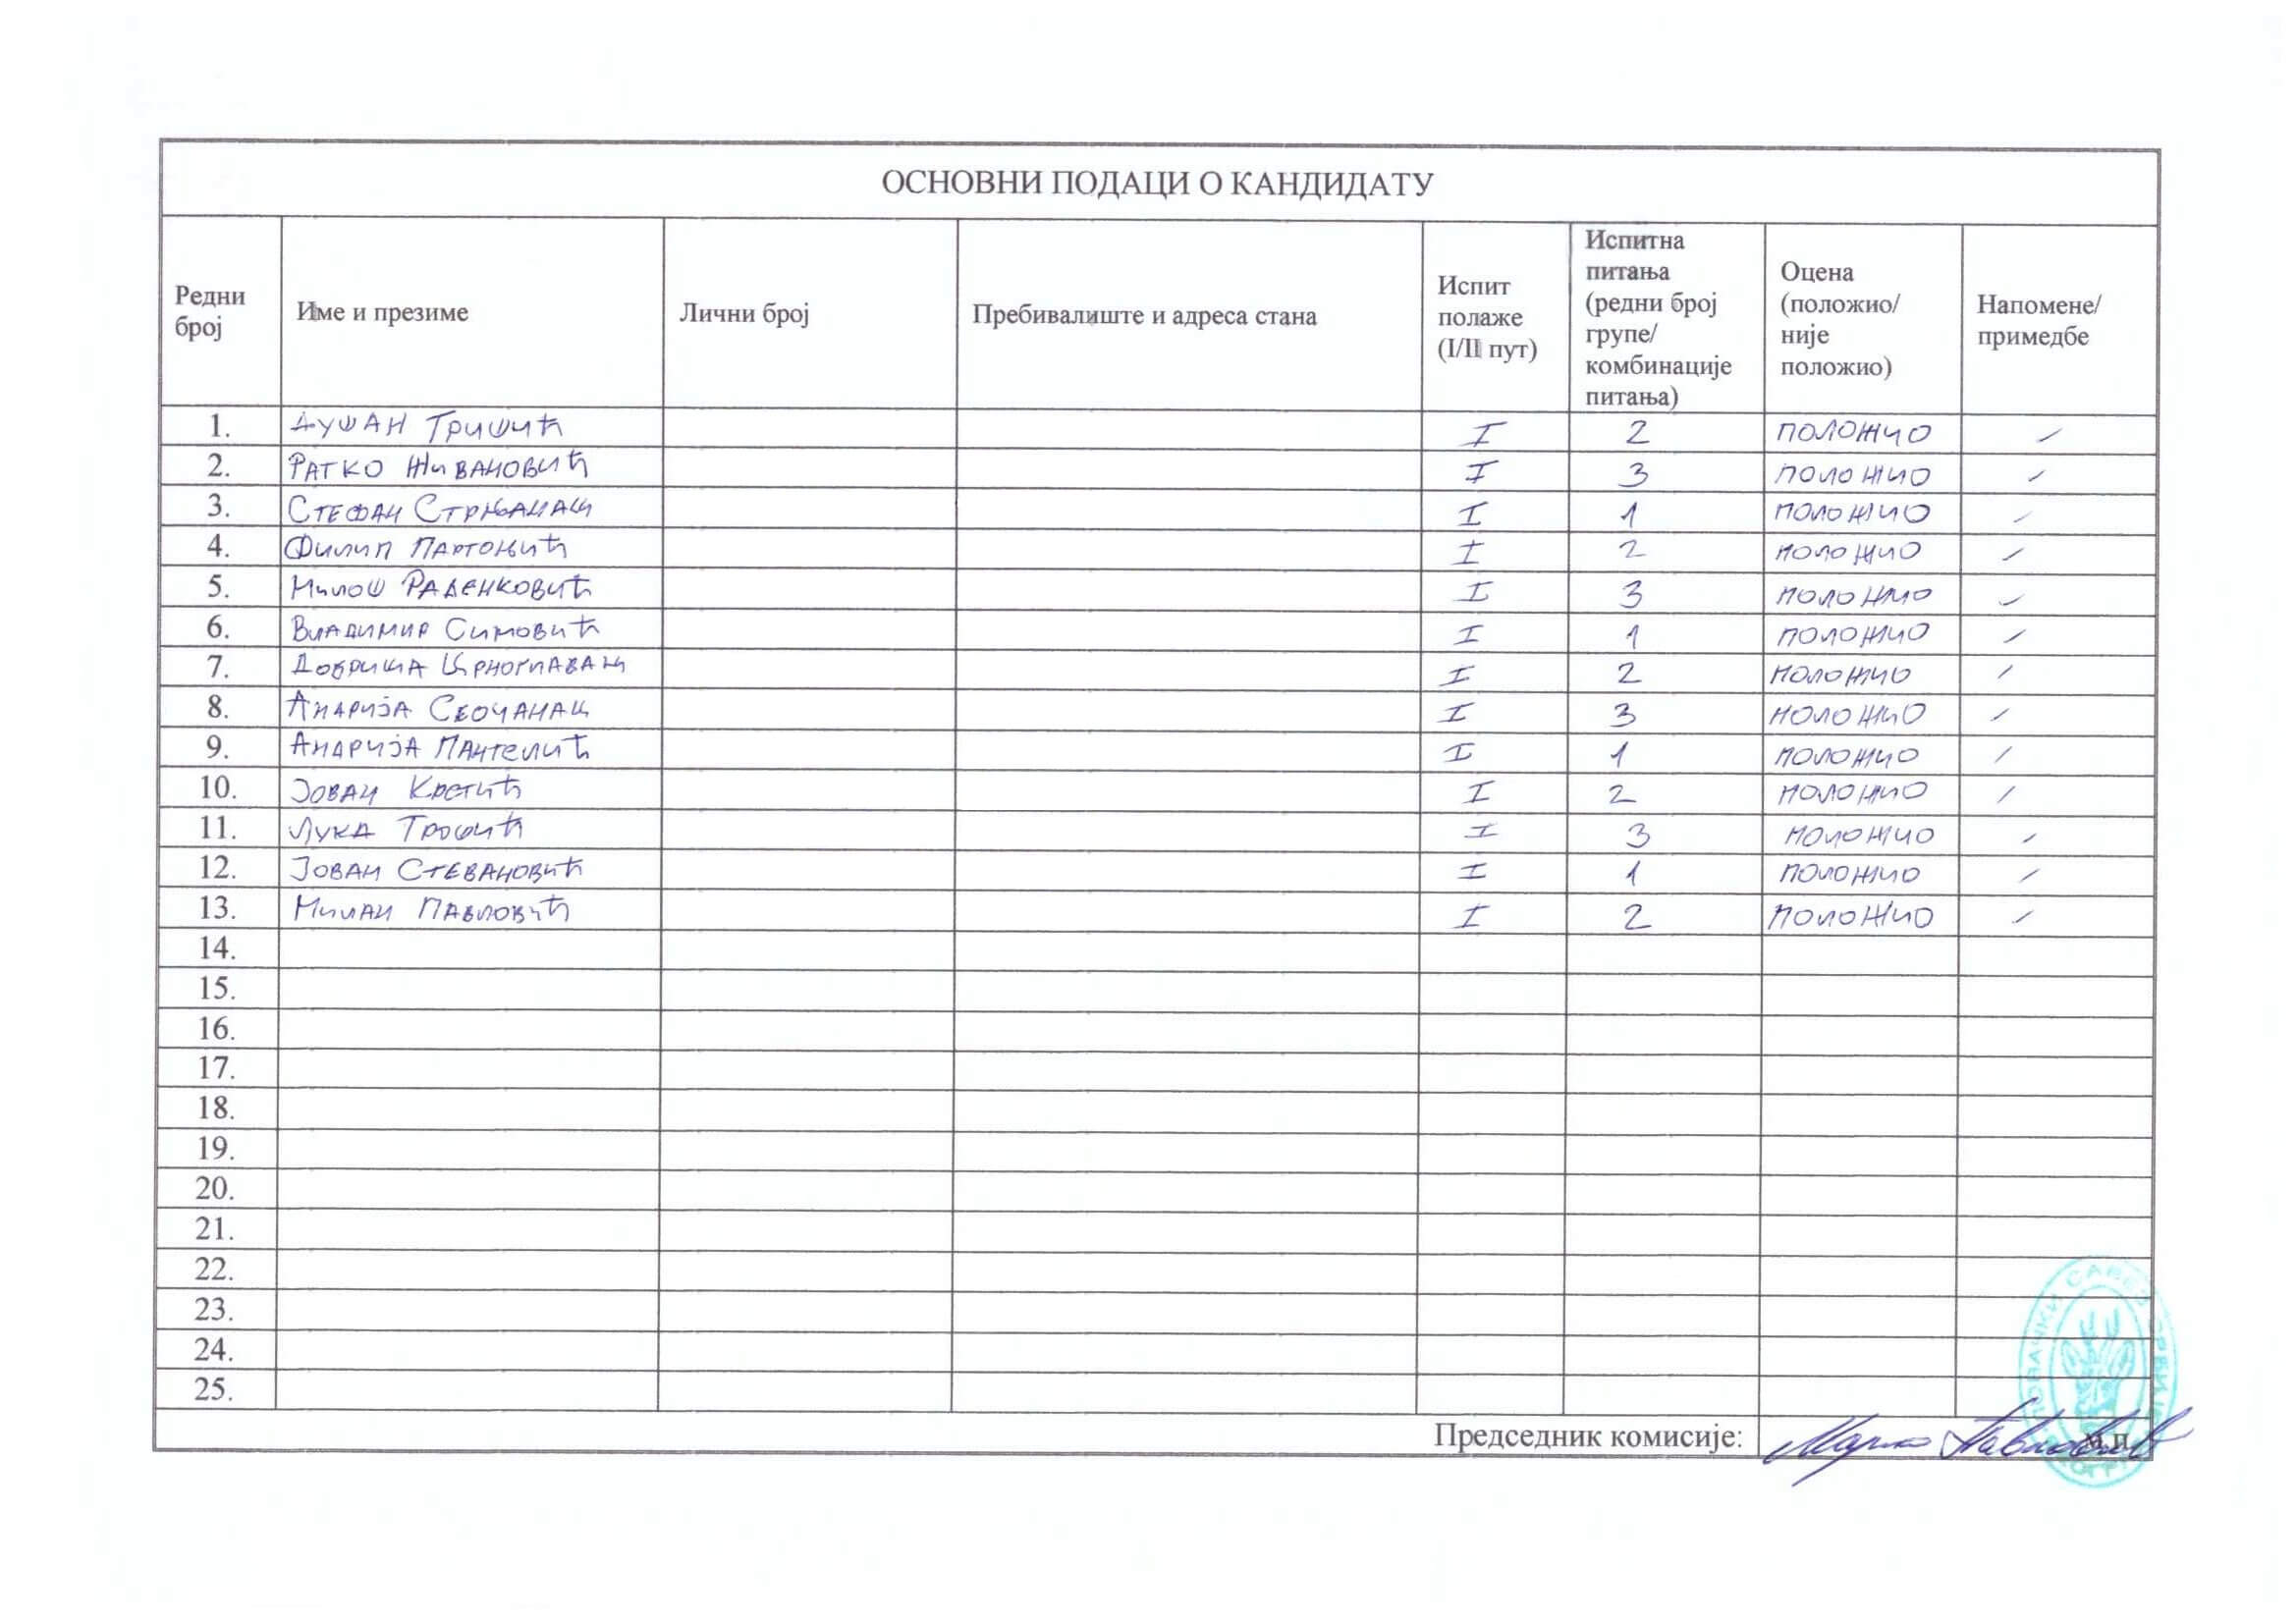 ОСНОВНИ ПОДАЦИ О КАНДИДАТУ
Редни број
Име и презиме
Лични број
Пребивалиште и адреса стана
Испит полаже (I/II пут)
Испитна питања (редни број групе/ комбинације питања)
Оцена (положио/ није положио)
Напомене/ примедбе
1. ДУШАН ТРИШИЋ I 2 ПОЛОЖИО /
2. РАТКО ЖИВАНОВИЋ I 3 ПОЛОЖИО /
3. СТЕФАН СТРЊАНАЦ I 1 ПОЛОЖИО /
4. ФИЛИП ПАРТОЊИЋ I 2 ПОЛОЖИО /
5. МИЛОШ РАДЕНКОВИЋ I 3 ПОЛОЖИО /
6. ВЛАДИМИР СИМОВИЋ I 1 ПОЛОЖИО /
7. ДОБРИША ЦРНОГЛАВАЦ I 2 ПОЛОЖИО /
8. АНДРИЈА СЕОЧАНАЦ I 3 ПОЛОЖИО /
9. АНДРИЈА ПАНТЕЛИЋ I 1 ПОЛОЖИО /
10. ЈОВАН КРСТИЋ I 2 ПОЛОЖИО /
11. ЛУКА ТРОШИЋ I 3 ПОЛОЖИО /
12. ЈОВАН СТЕВАНОВИЋ I 1 ПОЛОЖИО /
13. МИЛАН ПАВЛОВИЋ I 2 ПОЛОЖИО /
14.
15.
16.
17.
18.
19.
20.
21.
22.
23.
24.
25.
Председник комисије: Марко Павловић М.П.